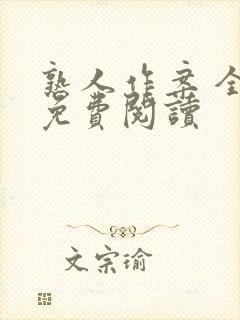 熟人作案全
免費閱讀
文宗瑜